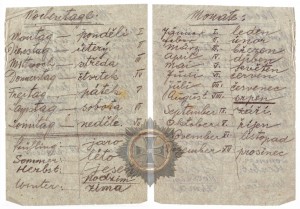 Wochentage:
Montag — pondělí I
Dienstag — úterý II
Mittwoch — středa III
Donnerstag — čtvrtek IV
Freitag — pátek V
sobota
Sonntag — neděle
Frühling — jaro
Sommer — léto
Herbst
podzim
Winter — zima
Monate:
Jänner I leden
Februar II únor
März III březen
April IV duben
Mai V květen
Juni VI červen
Juli VII červenec
srpen
September září
Oktober říjen
November listopad
Dezember prosinec